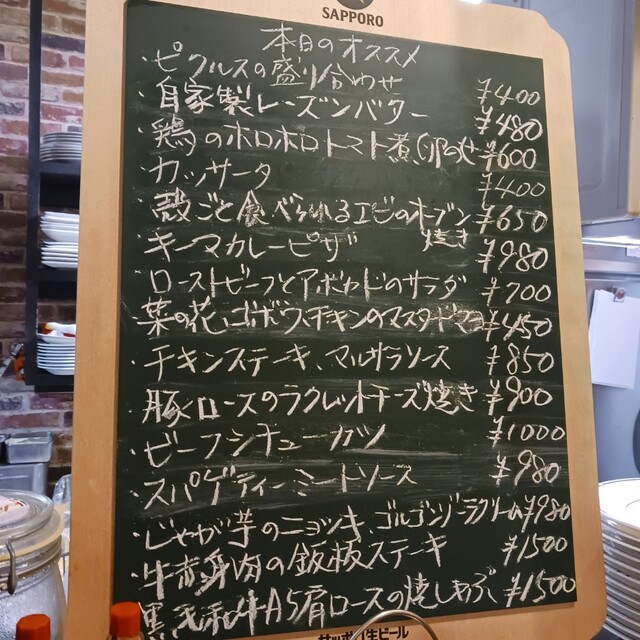 SAPPORO
本日のオススメ
・ピクルスの盛り合わせ ¥400
・自家製レーズンバター ¥480
・鶏のホロホロトマト煮、卵のせ ¥600
・カッサータ ¥400
・殻ごと食べられるエビのオーブン焼き ¥650
・キーマカレーピザ ¥980
・ローストビーフとアボカドのサラダ ¥700
・菜の花、ゴボウ、チキンのマスタードマヨ ¥450
・チキンステーキ、マルサラソース ¥850
・豚ロースのラクレットチーズ焼き ¥900
・ビーフシチューカツ ¥1000
・スパゲティーミートソース ¥980
・じゃが芋のニョッキ、ゴルゴンゾーラクリーム ¥980
・牛赤身肉の鉄板ステーキ ¥1500
・黒毛和牛A5肩ロースの焼しゃぶ ¥1500
サッポロ生ビール